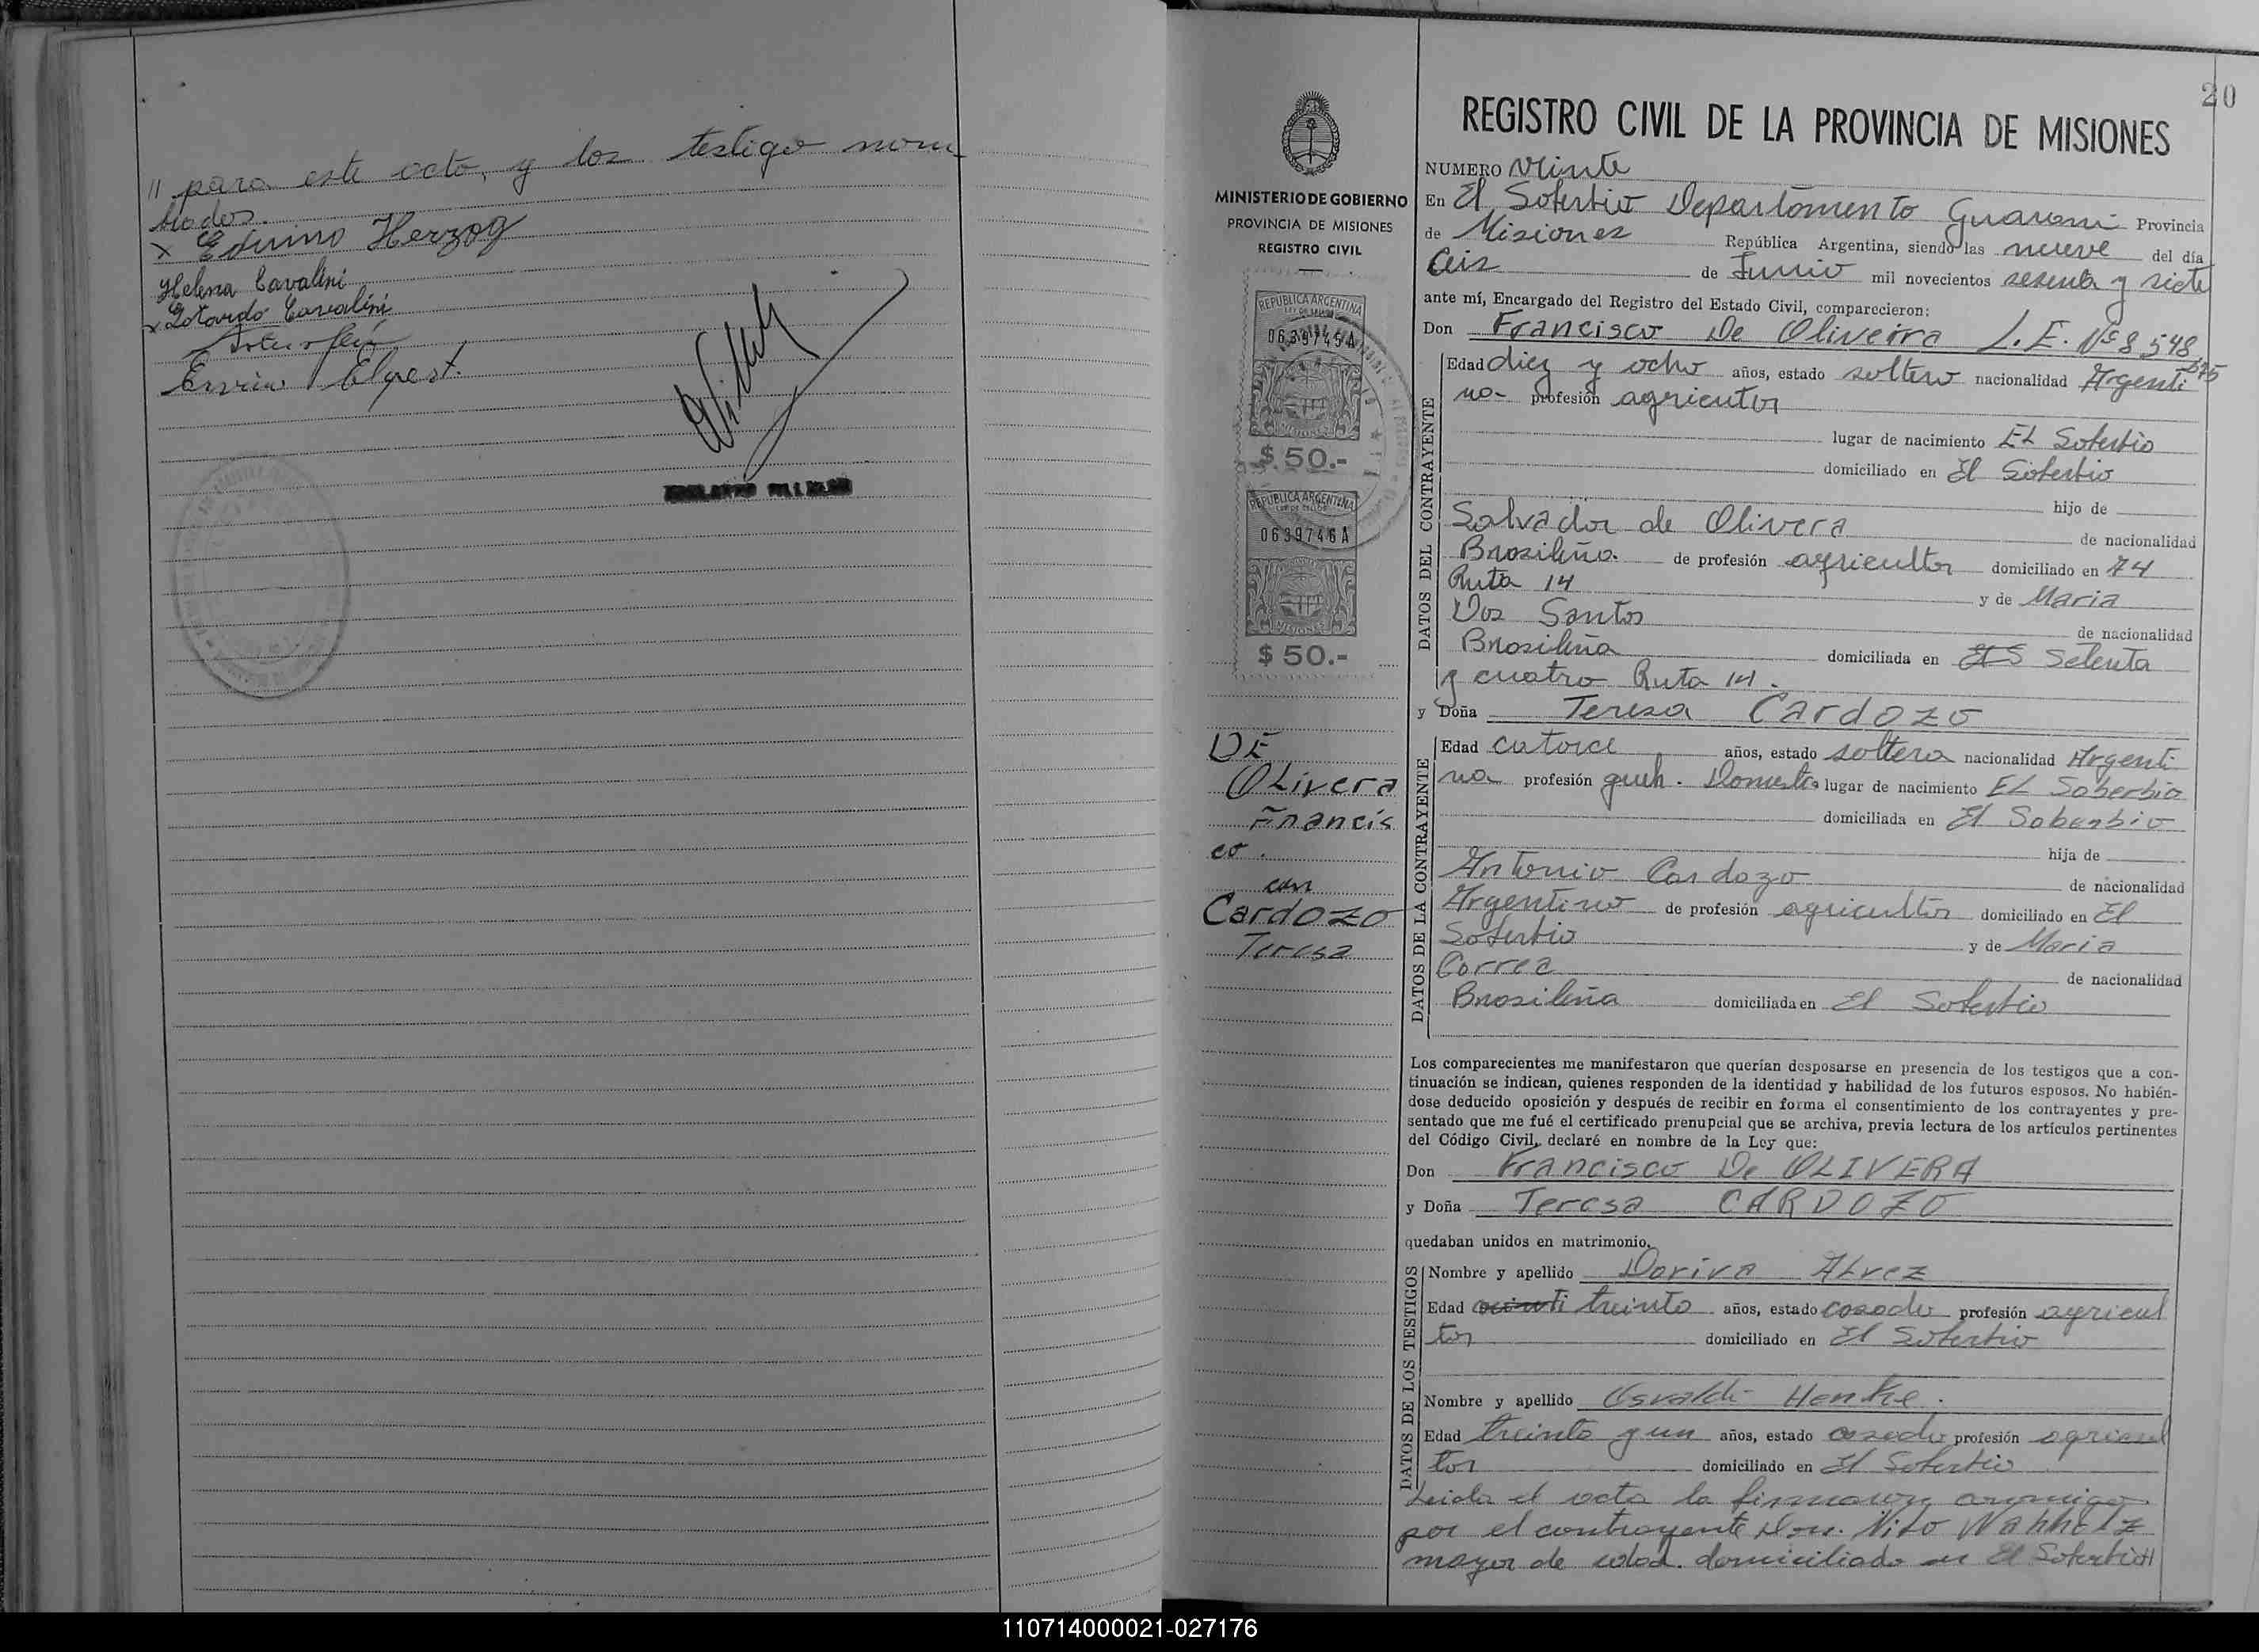 // para este acto, y los testigo nom-
brados.
x Eduino Herzog
Helena Cavalini
x Lotardo Cavalini
Erwin Elgest.
20
REGISTRO CIVIL DE LA PROVINCIA DE MISIONES
MINISTERIO DE GOBIERNO
PROVINCIA DE MISIONES
REGISTRO CIVIL
REPUBLICA ARGENTINA
0639745A
MISIONES
$ 50.-
REPUBLICA ARGENTINA
0639746A
MISIONES
$ 50.-
DE
OLivera
Francis
co.
con
Cardozo
Teresa
NUMERO Veinte
En El Soberbio Departamento Guarani Provincia
de Misiones República Argentina, siendo las nueve del día
Ceis de Junio mil novecientos sesenta y siete
ante mí, Encargado del Registro del Estado Civil, comparecieron:
Don Francisco De Oliveira L.E. Nº 8.548.575
DATOS DEL CONTRAYENTE
Edad diez y ocho años, estado soltero nacionalidad Argenti
no- profesión agricultor
lugar de nacimiento EL Soberbio
domiciliado en El Soberbio
hijo de
Salvador de Olivera de nacionalidad
Brasileño. de profesión agricultor domiciliado en 74
Ruta 14 y de Maria
Dos Santos de nacionalidad
Brasileña domiciliada en Setenta
y cuatro Ruta 14.
y Doña Teresa Cardozo
DATOS DE LA CONTRAYENTE
Edad catorce años, estado soltera nacionalidad Argenti
na profesión queh. Domesticos lugar de nacimiento EL Soberbio
domiciliada en El Soberbio
hija de
Antonio Cardozo de nacionalidad
Argentino de profesión agricultor domiciliado en El
Soberbio y de Maria
Correa de nacionalidad
Brasileña domiciliada en El Soberbio
Los comparecientes me manifestaron que querían desposarse en presencia de los testigos que a con-
tinuación se indican, quienes responden de la identidad y habilidad de los futuros esposos. No habién-
dose deducido oposición y después de recibir en forma el consentimiento de los contrayentes y pre-
sentado que me fué el certificado prenupcial que se archiva, previa lectura de los artículos pertinentes
del Código Civil, declaré en nombre de la Ley que:
Don Francisco De OLIVERA
y Doña Teresa CARDOZO
quedaban unidos en matrimonio.
DATOS DE LOS TESTIGOS
Nombre y apellido Doriva ALvez
Edad treinta años, estado casado profesión agricul
tor domiciliado en El Soberbio
Nombre y apellido Osvaldi Henke.
Edad treinta y un años, estado casado profesión agricul
tor domiciliado en El Soberbio
Leida el acta la firmaron conmigo
por el contrayente Don. Nilo Wahholz
mayor de edad. domiciliado en El Soberbio//
110714000021-027176